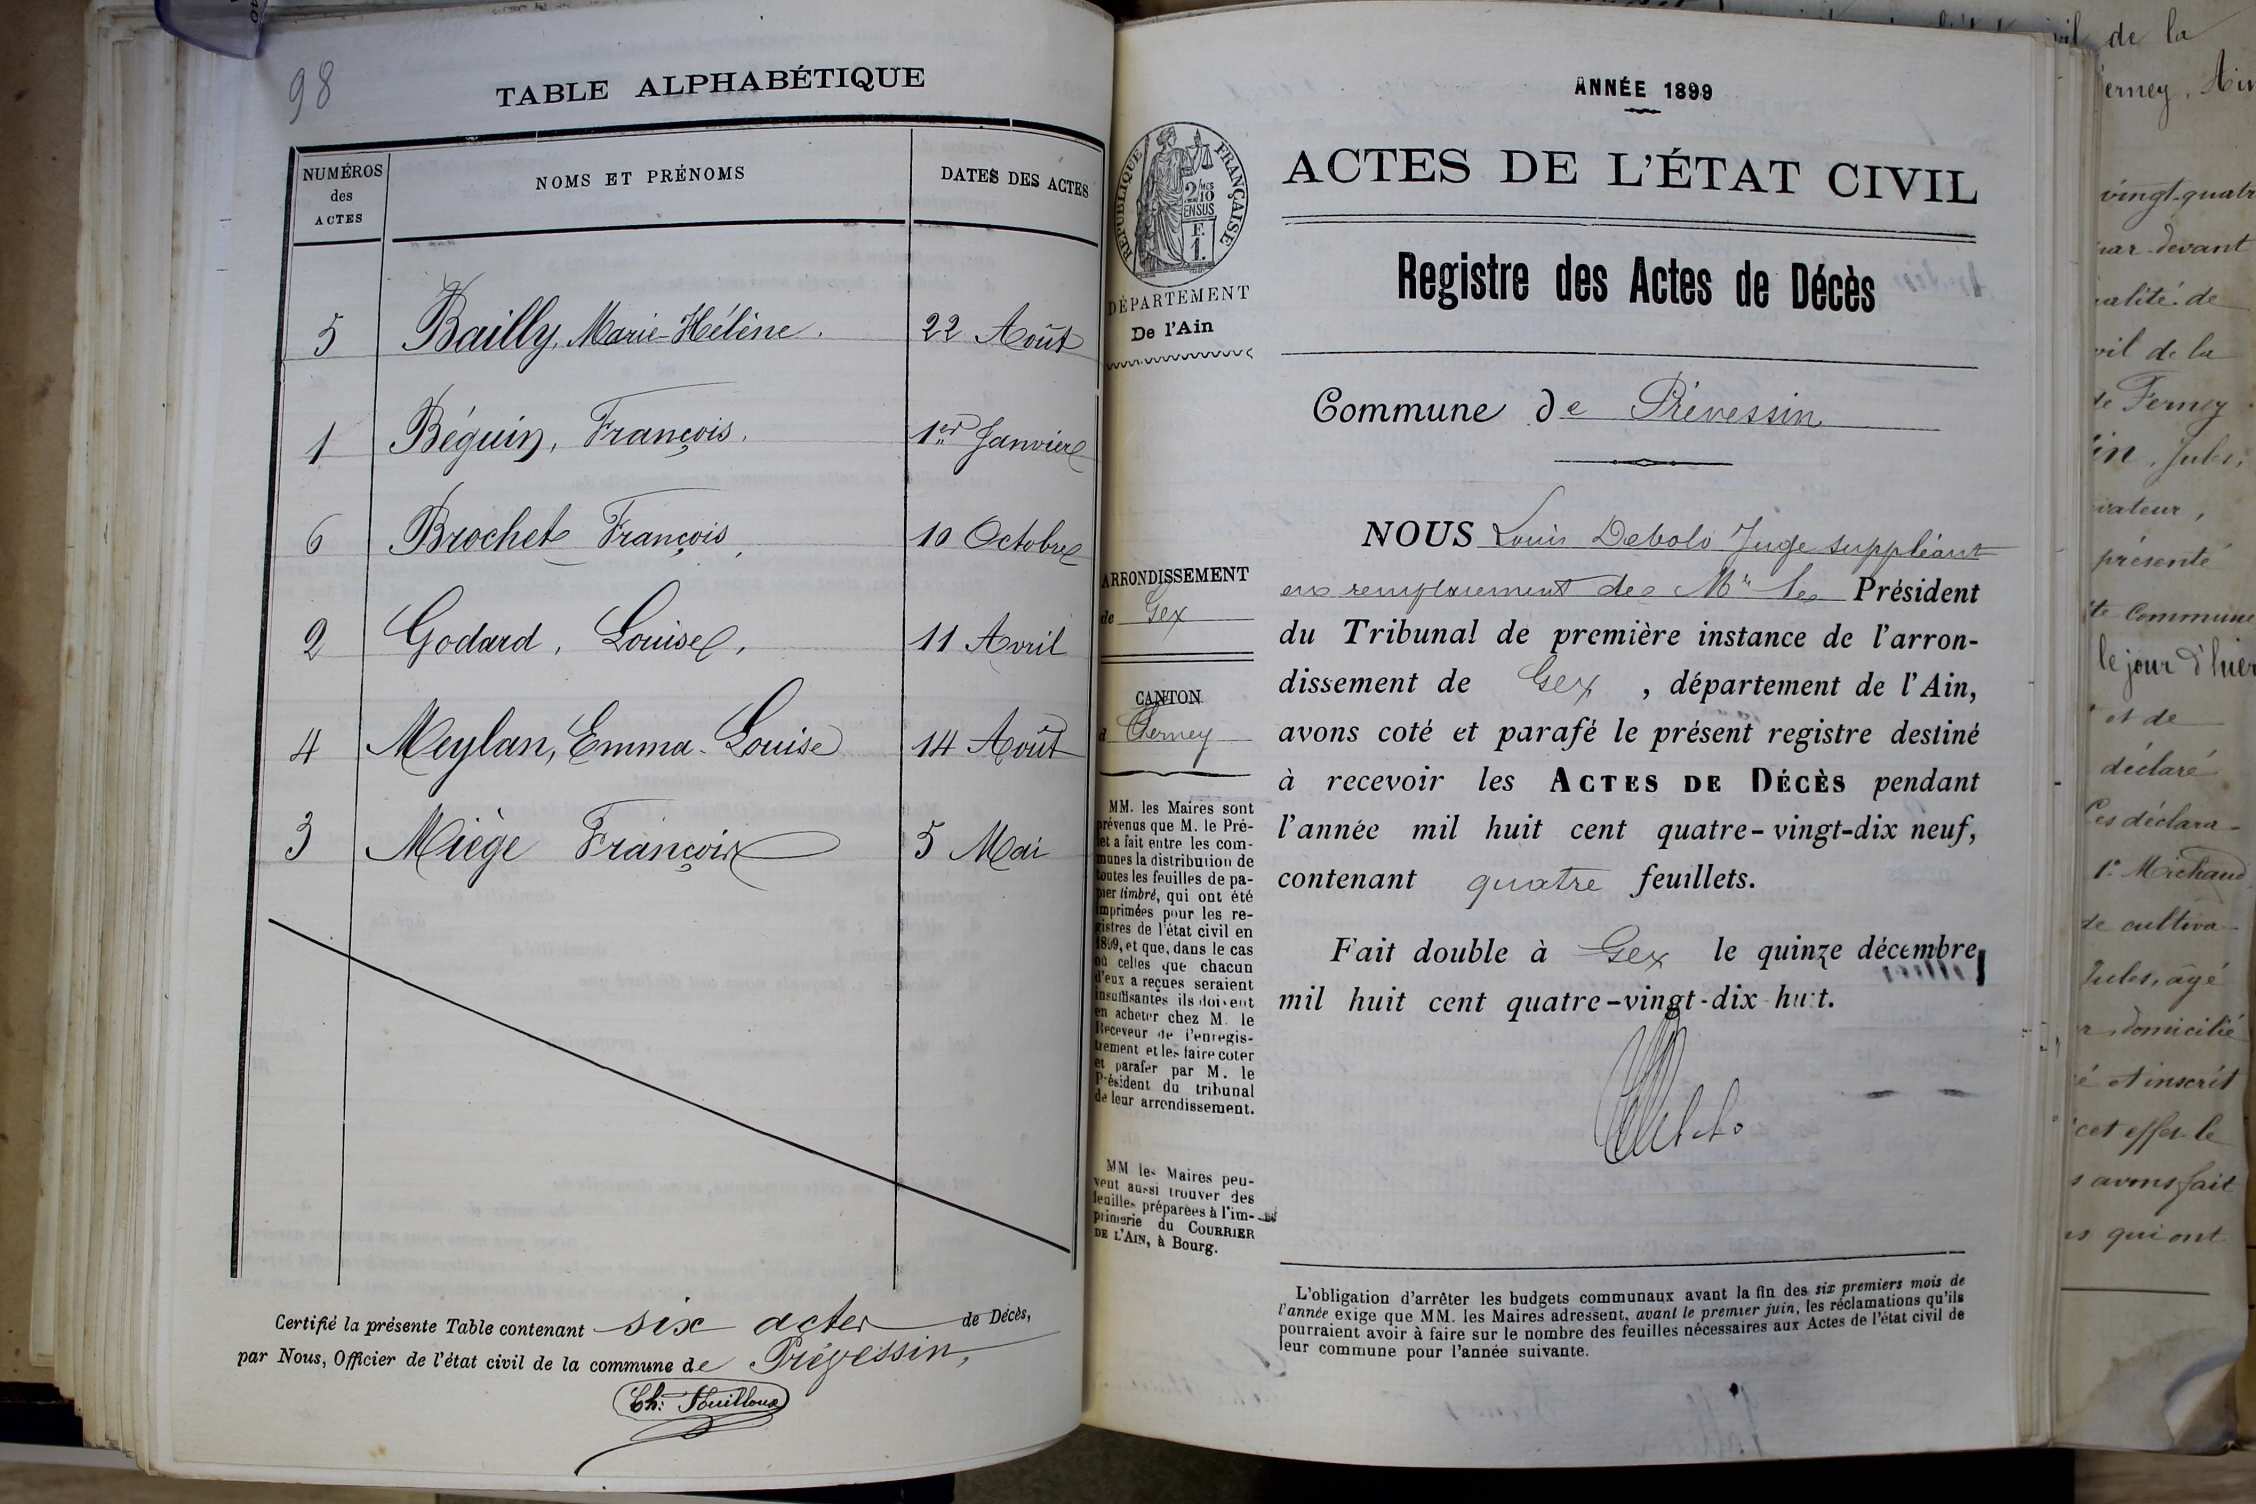 98
TABLE ALPHABÉTIQUE
NUMÉROS
des
ACTES
NOMS ET PRÉNOMS
DATES DES ACTES
5 Bailly, Marie-Hélène. 22 Août
1 Béguin, François. 1er Janvier
6 Brochet François, 10 Octobre
2 Godard, Louise, 11 Avril
4 Meylan, Emma-Louise 14 Août
3 Miège François 5 Mai
Certifié la présente Table contenant six actes de Décès,
par Nous, Officier de l'état civil de la commune de Prévessin,
Ch: Fouilloux
RÉPUBLIQUE FRANÇAISE
2/10
EN SUS
F.
1.
DÉPARTEMENT
De l'Ain
ARRONDISSEMENT
de Gex
CANTON
Ferney
MM. les Maires sont
prévenus que M. le Pré-
fet a fait entre les com-
munes la distribution de
toutes les feuilles de pa-
pier timbré, qui ont été
imprimées pour les re-
gistres de l'état civil en
1899, et que, dans le cas
où celles que chacun
d'eux a reçues seraient
insuffisantes ils doivent
en acheter chez M. le
Receveur de l'enregis-
trement et les faire coter
et parafer par M. le
Président du tribunal
de leur arrondissement.
MM les Maires peu-
vent aussi trouver des
feuilles préparées à l'im-
primerie du COURRIER
DE L'AIN, à Bourg.
ANNÉE 1899
ACTES DE L'ÉTAT CIVIL
Registre des Actes de Décès
Commune de Prévessin
NOUS Louis Debolo Juge suppléant
en remplacement de Mr le Président
du Tribunal de première instance de l'arron-
dissement de Gex, département de l'Ain,
avons coté et parafé le présent registre destiné
à recevoir les ACTES DE DÉCÈS pendant
l'année mil huit cent quatre-vingt-dix neuf,
contenant quatre feuillets.
Fait double à Gex le quinze décembre
mil huit cent quatre-vingt-dix huit.
L'obligation d'arrêter les budgets communaux avant la fin des six premiers mois de
l'année exige que MM. les Maires adressent, avant le premier juin, les réclamations qu'ils
pourraient avoir à faire sur le nombre des feuilles nécessaires aux Actes de l'état civil de
leur commune pour l'année suivante.
de la
vingt-quatr
devant
de
de la
de Ferney
Jules,
présenté
Commune
le jour d'hier
et de
déclaré
Ces déclara-
1° Michaud
de cultiva-
Jules, âgé
domicilié
et inscrit
cet effet le
avons fait
qui ont